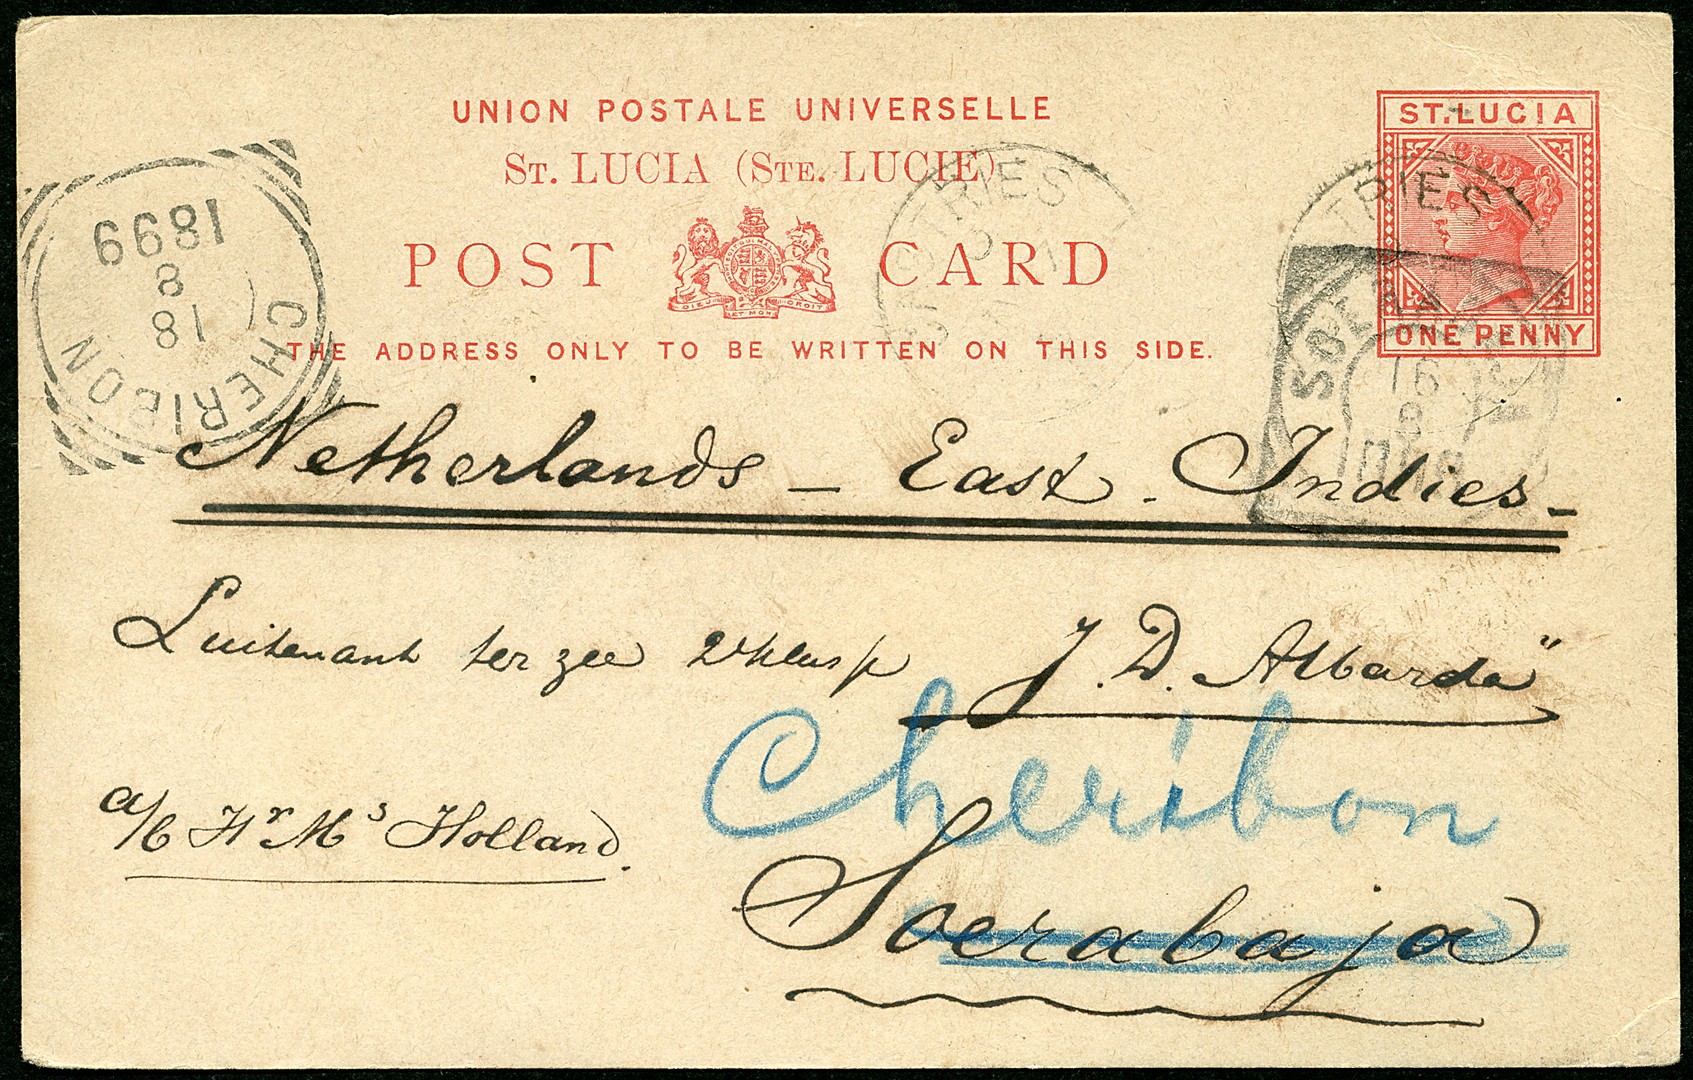 UNION POSTALE UNIVERSELLE
ST. LUCIA (STE. LUCIE)
POST CARD
DIEU ET MON DROIT
THE ADDRESS ONLY TO BE WRITTEN ON THIS SIDE.
ST. LUCIA
ONE PENNY
CHERIBON
18
8
1899
TRIES
TRIES
SOE
16
8
Netherlands - East - Indies -
Luitenant ter zee 2e klasse J. D. Albarda"
Cheribon
a/b Hr Ms Holland.
Soerabaja